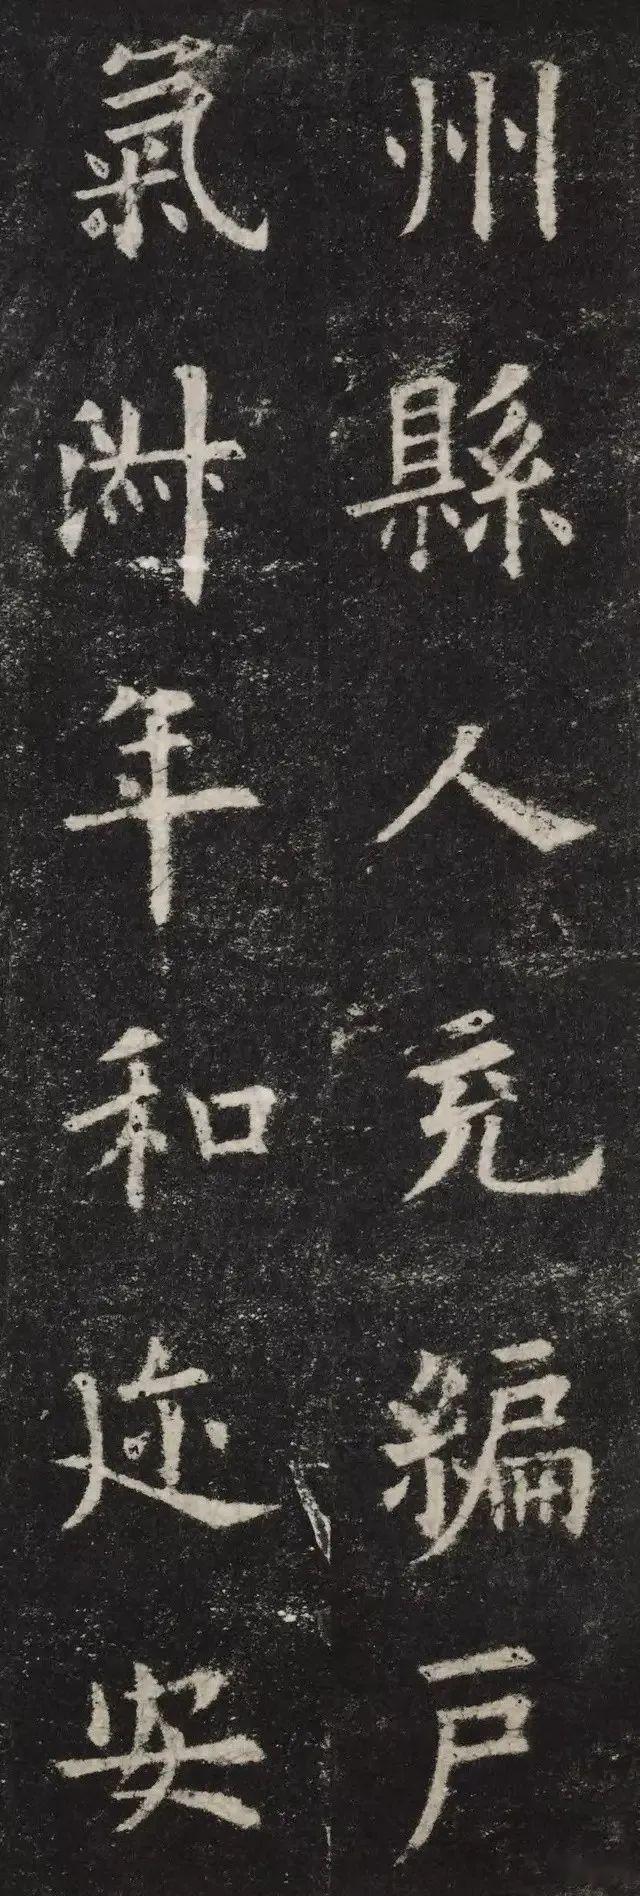 州縣人充編戶
氣淑年和迩安